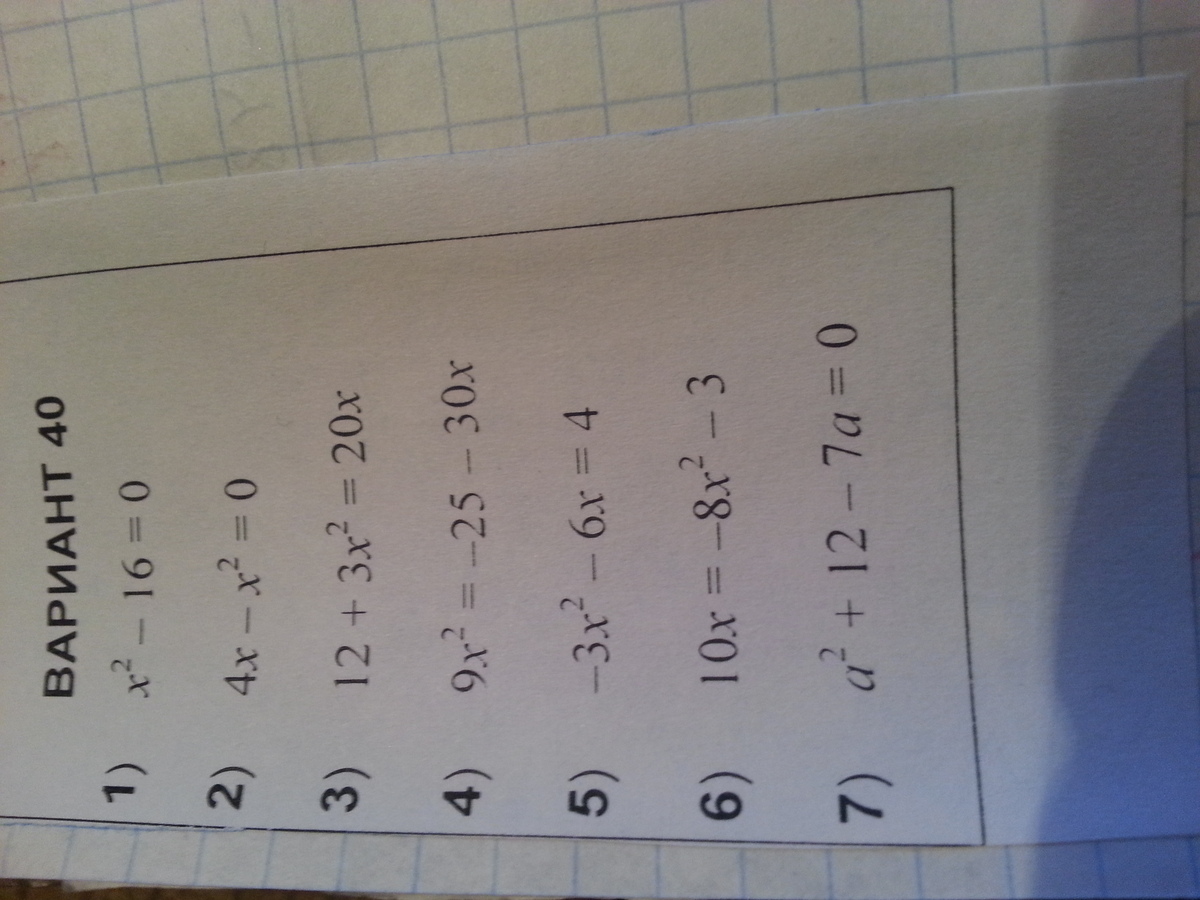 ВАРИАНТ 40
1) x² − 16 = 0
2) 4x − x² = 0
3) 12 + 3x² = 20x
4) 9x² = −25 − 30x
5) −3x² − 6x = 4
6) 10x = −8x² − 3
7) a² + 12 − 7a = 0